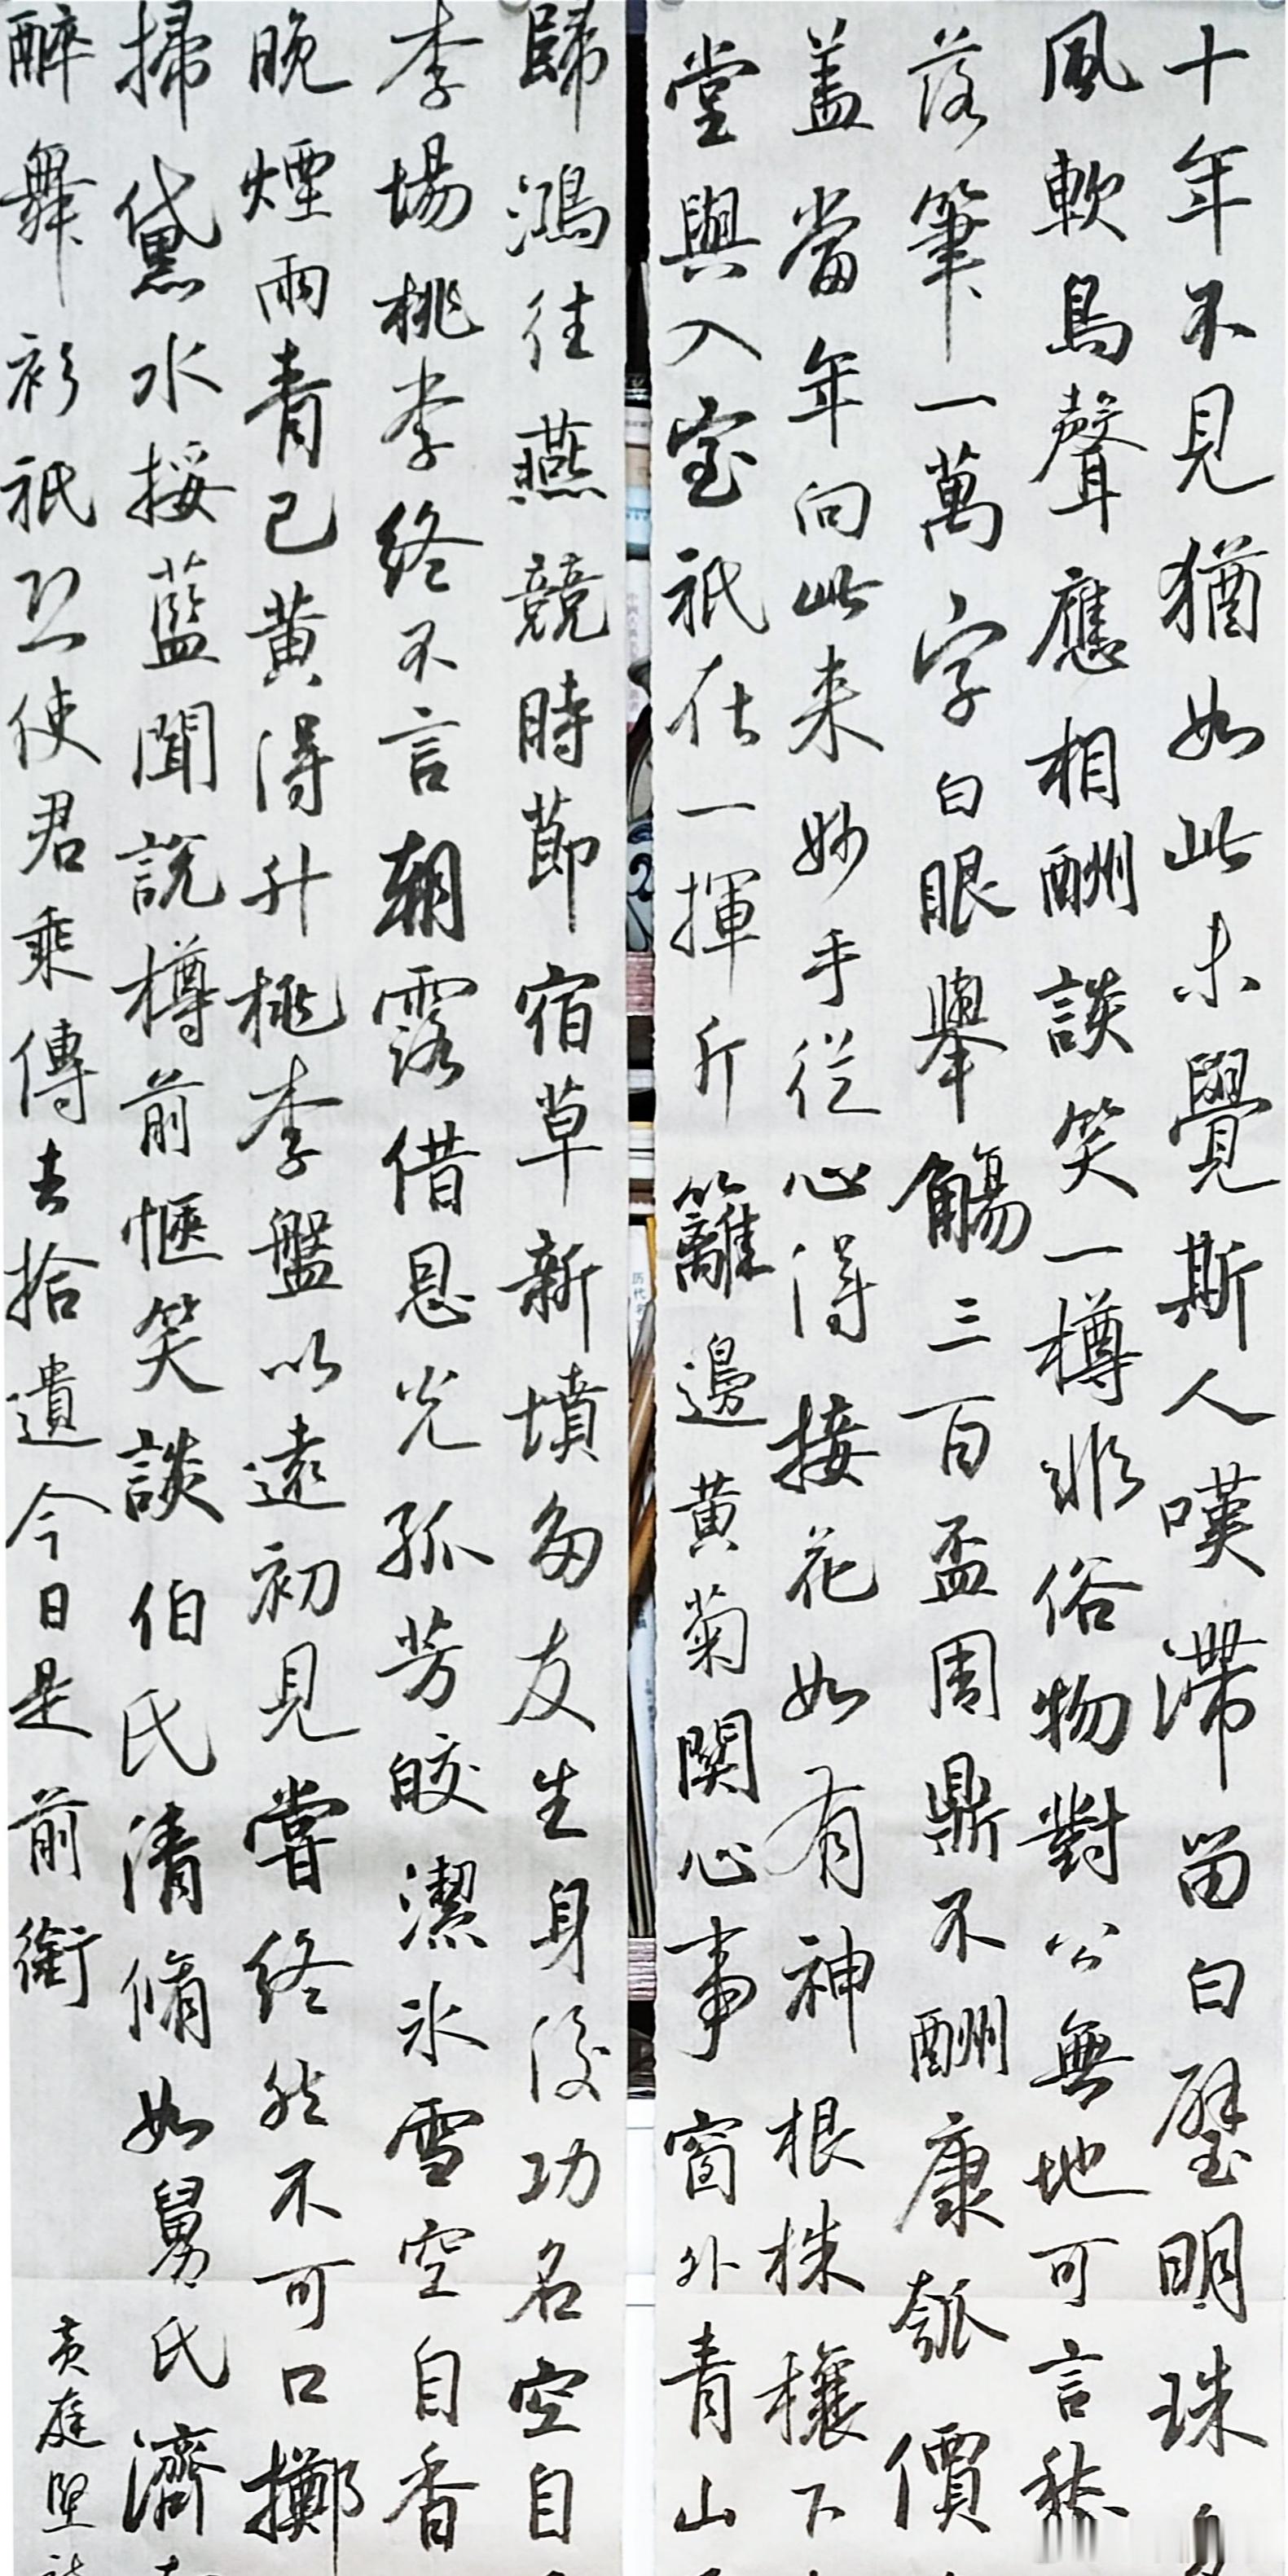 十年不見猶如此未覺斯人嘆滯留白璧明珠
風軟鳥聲應相酬談笑一樽非俗物對公無地可言愁
落筆一萬字白眼舉觴三百盃周鼎不酬康瓠價
盖當年向此来妙手從心得接花如有神根株穰下
堂與入室祇在一揮斤籬邊黄菊關心事窗外青山
歸鴻往燕競時節宿草新墳多友生身後功名空自
李場桃李終不言朝露借恩光孤芳皎潔冰雪空自香
晚煙雨青已黄得升桃李盤以遠初見嘗終然不可口擲
掃黛水挼藍聞說樽前愜笑談伯氏清脩如舅氏濟
醉舞衫祇恐使君乘傳去拾遺今日是前銜
黄庭堅